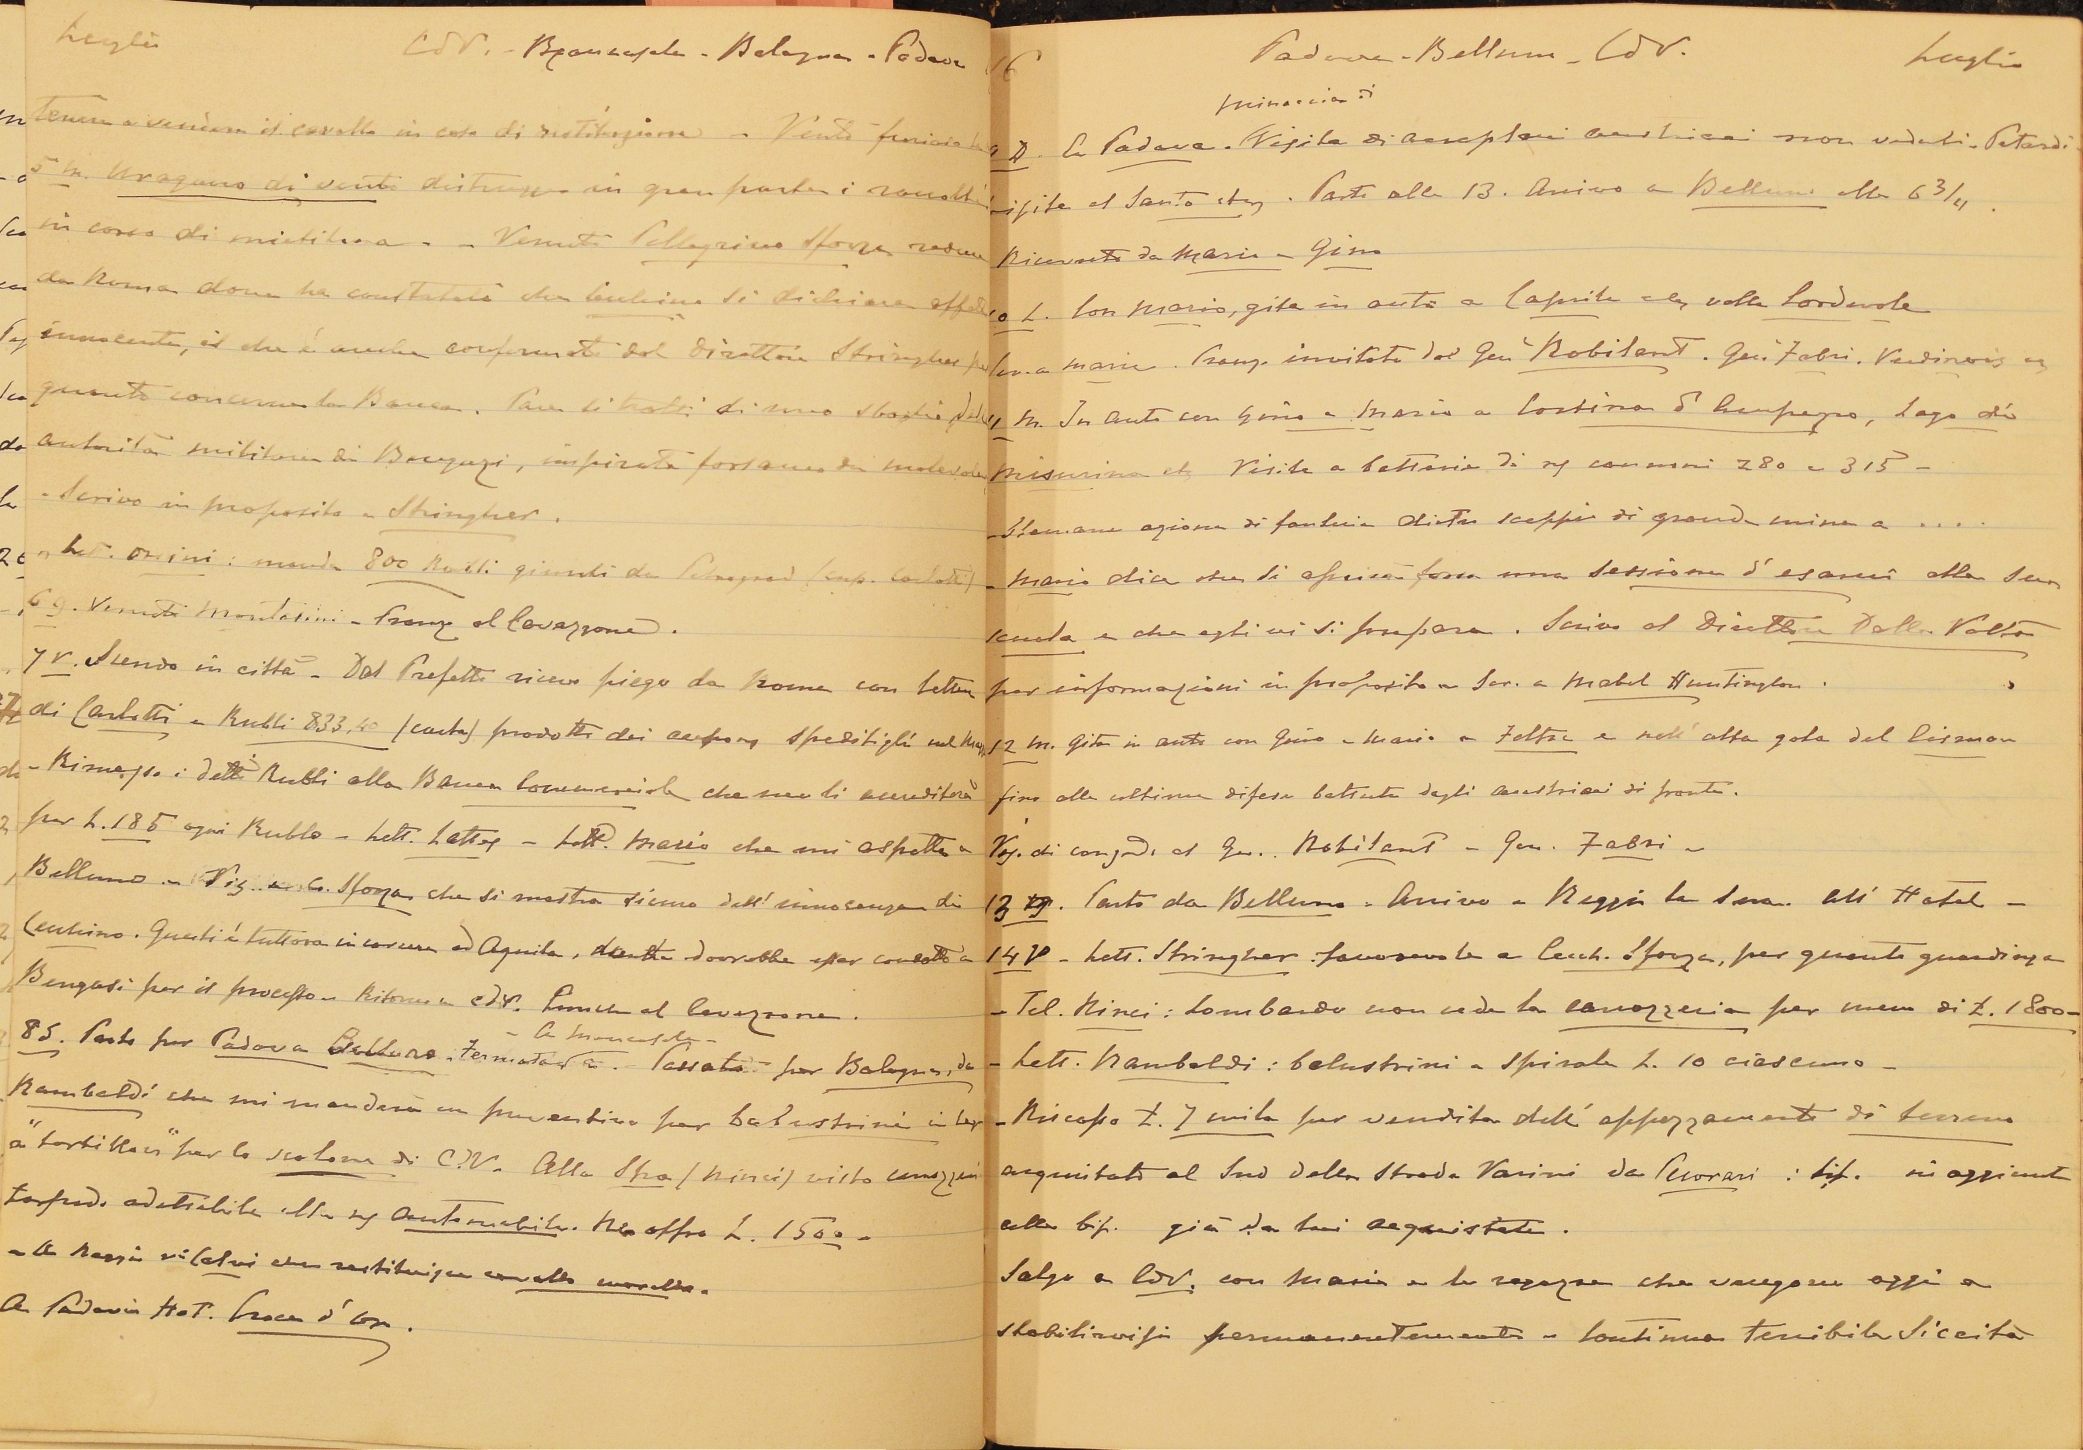 Luglio CdV. - Bologna - Padova
a vendere il cavallo in caso di restituzione - Vento furioso
5 M. Uragano di vento distrugge in gran parte i raccolti
in corso di mietitura. - Venuto Pellegrino Sforza reduce
da Roma dove ha constatato che Cecchino si dichiara
innocente, il che è anche confermato dal Direttore Stringher per
quanto concerne la Banca. Pare si tratti di uno sbaglio
autorità militare di Bengazi, inspirata forse anche da
- Scrivo in proposito a Stringher.
- Lett. Orsini: manda 800 Rubli giunti da Petrograd (
6 G. Venuto Montasini - Pranzo al Cavazzone.
7 V. Scendo in città - Dal Prefetto ricevo piego da Roma con lettera
di Carlotti e Rubli 833,40 (carta) prodotto dei speditigli nel
- Rimessi i detti Rubli alla Banca Commerciale che me li accrediterà
per L. 185 ogni Rublo - Lett. Lattes - Lett. Mario che mi aspetta a
Belluno - Sforza che si mostra sicuro dell'innocenza di
Cecchino. Questi è tuttora in carcere ad Aquila, dovrebbe esser condotto a
Bengasi per il processo - Ritorno a CdV. Pranzo al Cavazzone.
- a
8 S. Parto per Padova Fermata a. - Passato per Bologna, da
Rambaldi che mi manderà un preventivo per balustrini in
a "tortillon" per lo scalone di C.V. Alla Spa (Rinci) visto carrozzeria
torpedo adattabile alla automobile. Ne offro L. 1500 -
- A Reggio Calvi che restituisce cavallo morello.
A Padova Hot. Croce d'oro.
16 Padova - Belluno - CdV. Luglio
minaccia di
9 D. A Padova. Visita di aeroplani austriaci non veduti. Petardi.
Visita al Santo etc. Parto alle 13. Arrivo a Belluno alle 6 3/4.
Ricevuto da Mario e Gino
10 L. Con Mario, gita in auto a Caprile e valle Cordevole
Pranzo invitato dal Gen. Robilant. Gen. Fabri.
11 M. In auto con Gino e Mario a Cortina d'Ampezzo, Lago di
Misurina etc. Visita a batterie di cannoni 280 e 315 -
- Stamane azione di fanteria dietro scoppio di grande mina a ....
- Mario dice che si aprirà forse una sessione d'esami alla sua
scuola e che egli vi si prepara. Scrivo al Direttore Dalla Volta
per informazioni in proposito e Scr. a Mabel Huntington.
12 M. Gita in auto con Gino e Mario a Feltre e nell'alta gola del Cismon
fino alle ultime difese battute dagli austriaci di fronte.
Vis. di congedo al Gen. Robilant e Gen. Fabri -
13 G. Parto da Belluno. Arrivo a Reggio la sera. All'Hotel -
14 V - Lett. Stringher favorevole a Cecch. Sforza, per quanto guardinga
- Tel. Rinci: Lombardo non cede la carrozzeria per meno di L. 1800 -
- Lett. Rambaldi: balustrini a spirale L. 10 ciascuno -
- Riscosso L. 7 mila per vendita dell'appezzamento di terreno
acquistato al Sud della Strada Vasini da : bif. in aggiunta
alle bif. già da lui acquistate.
Salgo a CdV. con Maria e le ragazze che vengono oggi a
stabilirvisi permanentemente - Continua terribile siccità